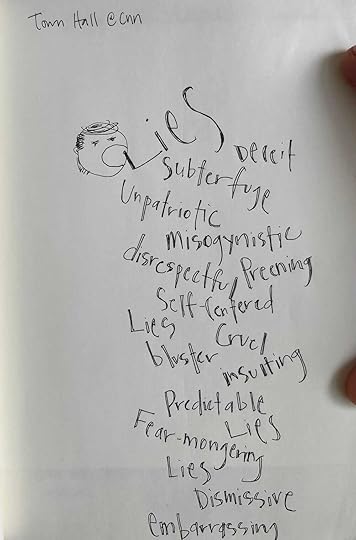 Town Hall @ CNN
Lies
Deceit
Subterfuge
Unpatriotic
Misogynistic
disrespectful Preening
Self-Centered
Lies Cruel
bluster insulting
Predictable
Lies
Fear-mongering
Lies
Dismissive
embarrassing